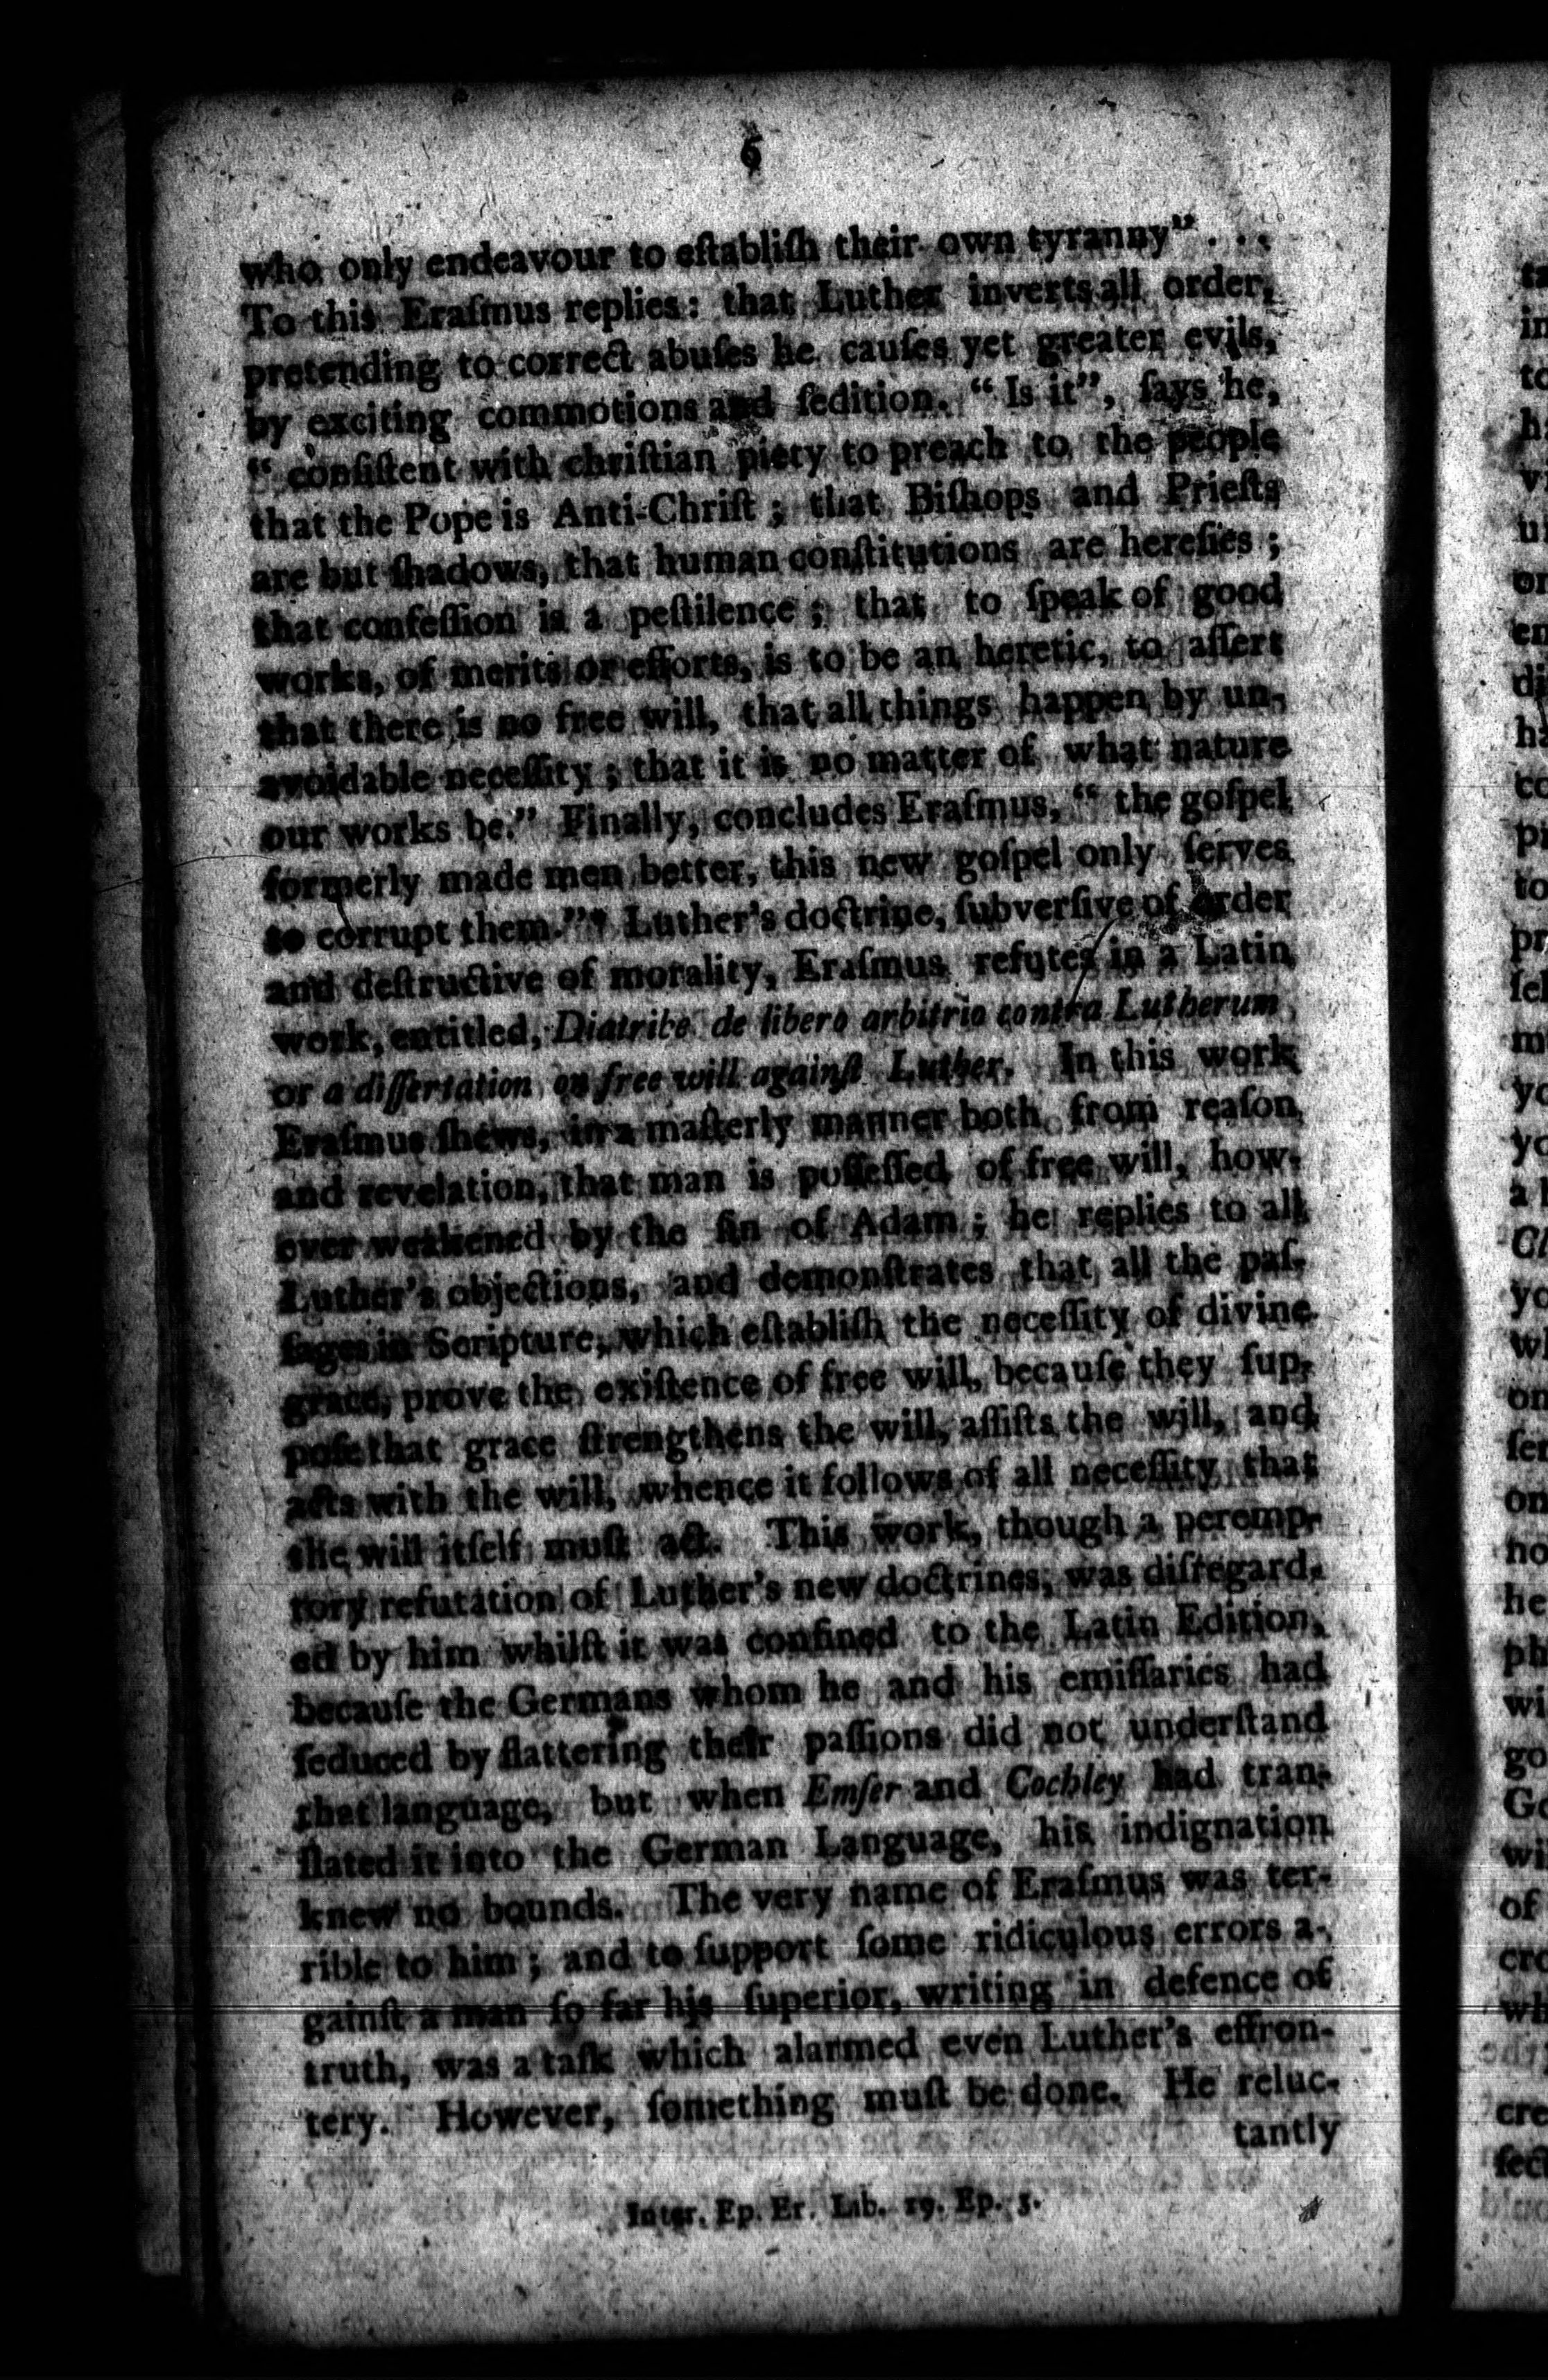 6
who only endeavour to eſtabliſh their own tyranny" . . .
To this Eraſmus replies: that Luther inverts all order,
pretending to correct abuſes he cauſes yet greater evils,
by exciting commotions and ſedition. "Is it", ſays he,
"conſiſtent with chriſtian piety to preach to the people
that the Pope is Anti-Chriſt; that Biſhops and Prieſts
are but ſhadows, that human conſtitutions are hereſies;
that confeſſion is a peſtilence; that to ſpeak of good
works, of merits or efforts, is to be an heretic, to aſſert
that there is no free will, that all things happen by un-
avoidable neceſſity; that it is no matter of what nature
our works be." Finally, concludes Eraſmus, "the goſpel
formerly made men better, this new goſpel only ſerves
to corrupt them."* Luther's doctrine, ſubverſive of order
and deſtructive of morality, Eraſmus refutes in a Latin
work, entitled, Diatribe de libero arbitrio contra Lutherum
or a diſſertation on free will againſt Luther. In this work
Eraſmus ſhews, in a maſterly manner both from reaſon
and revelation, that man is poſſeſſed of free will, how-
ever weakened by the ſin of Adam; he replies to all
Luther's objections, and demonſtrates that all the paſ-
ſages in Scripture, which eſtabliſh the neceſſity of divine
grace, prove the exiſtence of free will, becauſe they ſup-
poſe that grace ſtrengthens the will, aſſiſts the will, and
acts with the will, whence it follows of all neceſſity that
the will itſelf muſt act. This work, though a peremp-
tory refutation of Luther's new doctrines, was diſregard-
ed by him whilſt it was confined to the Latin Edition,
becauſe the Germans whom he and his emiſſaries had
ſeduced by flattering their paſſions did not underſtand
that language, but when Emſer and Cochley had tran-
ſlated it into the German Language, his indignation
knew no bounds. The very name of Eraſmus was ter-
rible to him; and to ſupport ſome ridiculous errors a-
gainſt a man ſo far his ſuperior, writing in defence of
truth, was a taſk which alarmed even Luther's effron-
tery. However, ſomething muſt be done. He reluc-
tantly
Inter. Ep. Er. Lib. 19. Ep. 3.